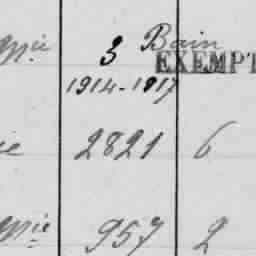 gnie 3 Bain
EXEMPT
1914-1917
ie 2821 6
gnie 957 2